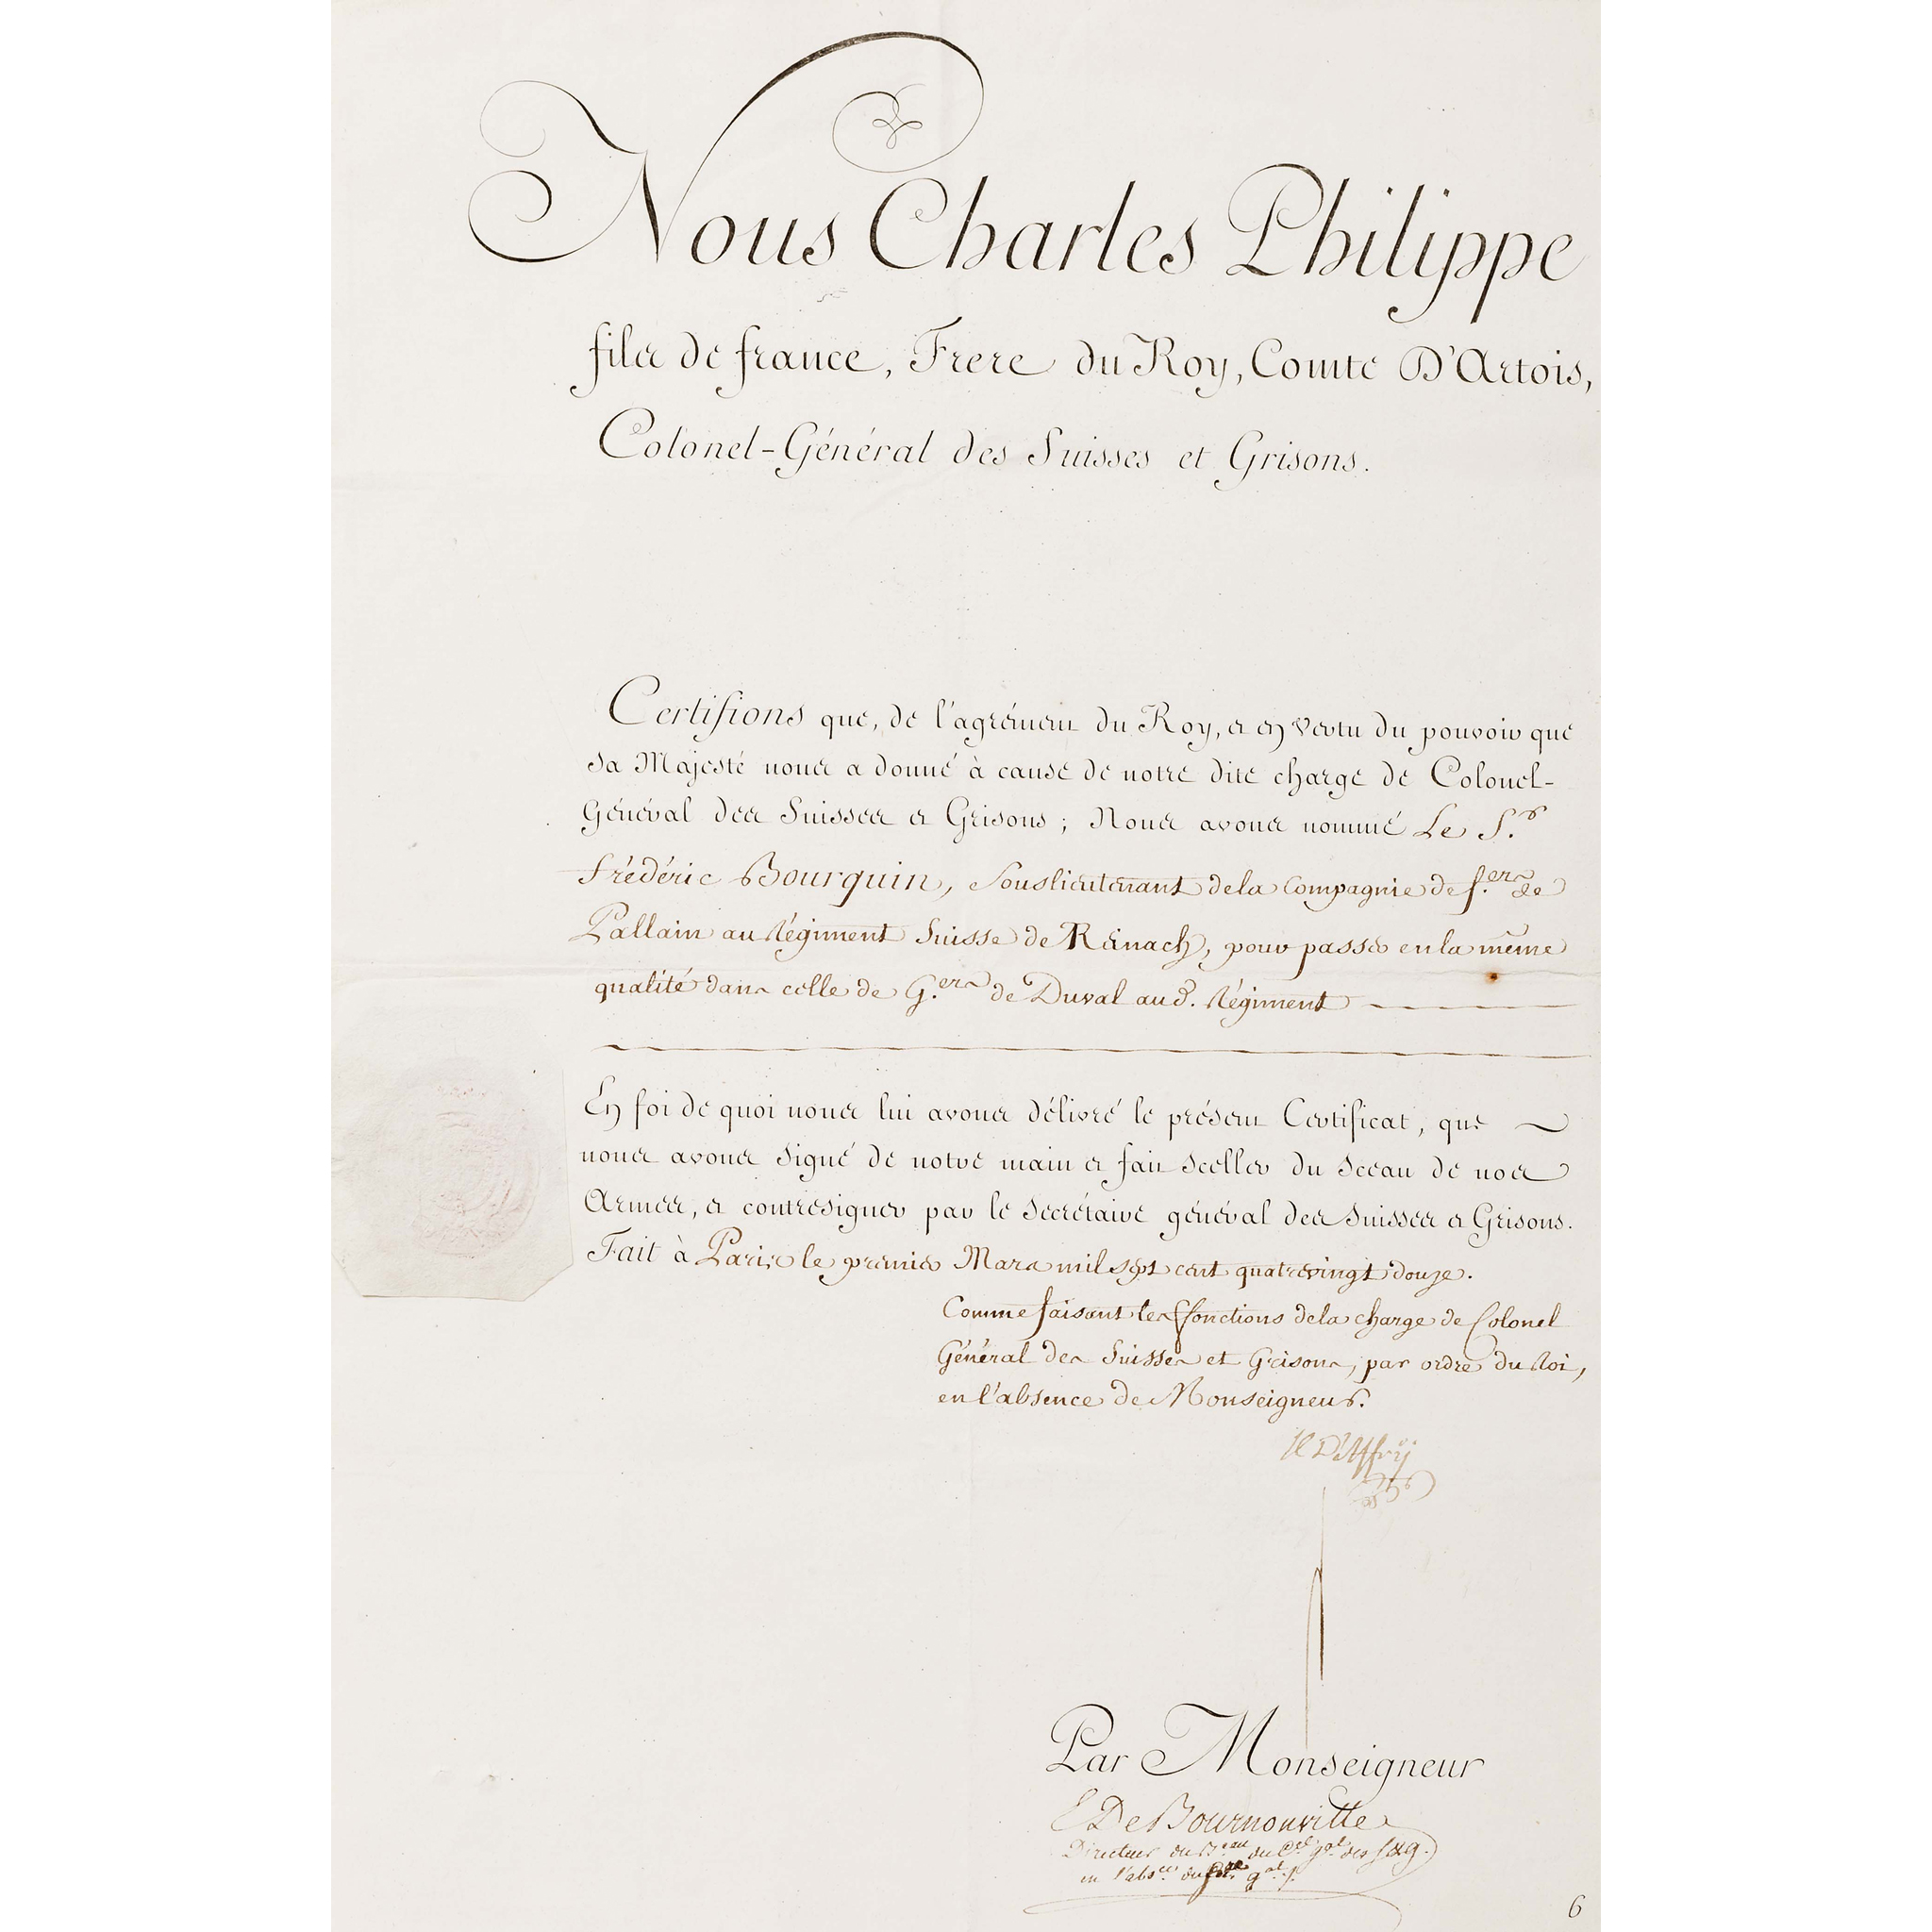 Nous Charles Philippe
fils de france, Frere du Roy, Comte D'Artois,
Colonel-Général des Suisses et Grisons.
Certifions que, de l'agrément du Roy, et en vertu du pouvoir que
Sa Majesté nous a donné à cause de notre dite charge de Colonel-
Général des Suisses et Grisons; Nous avons nommé Le S.r
frédéric Bourquin, Souslieutenant dela Compagnie de f.ers de
Pallain au Régiment Suisse de Reinach, pour passer en la même
qualité dans celle de G.ers de Duval aud. Régiment
En foi de quoi nous lui avons délivré le présent Certificat, que
nous avons Signé de notre main et fait Sceller du Sceau de nos
Armes, et contresigner par le Secrétaire général des Suisses et Grisons.
Fait à Paris le premier Mars mil sept cent quatrevingt douze.
Comme faisant les fonctions dela charge de Colonel
Général des Suisses et Grisons, par ordre du Roi,
en l'absence de Monseigneur.
D'Affry
Par Monseigneur
De Bournonville
Directeur du B.eau du C.el g.al des S & g.
en l'abs.ce du g.al
6